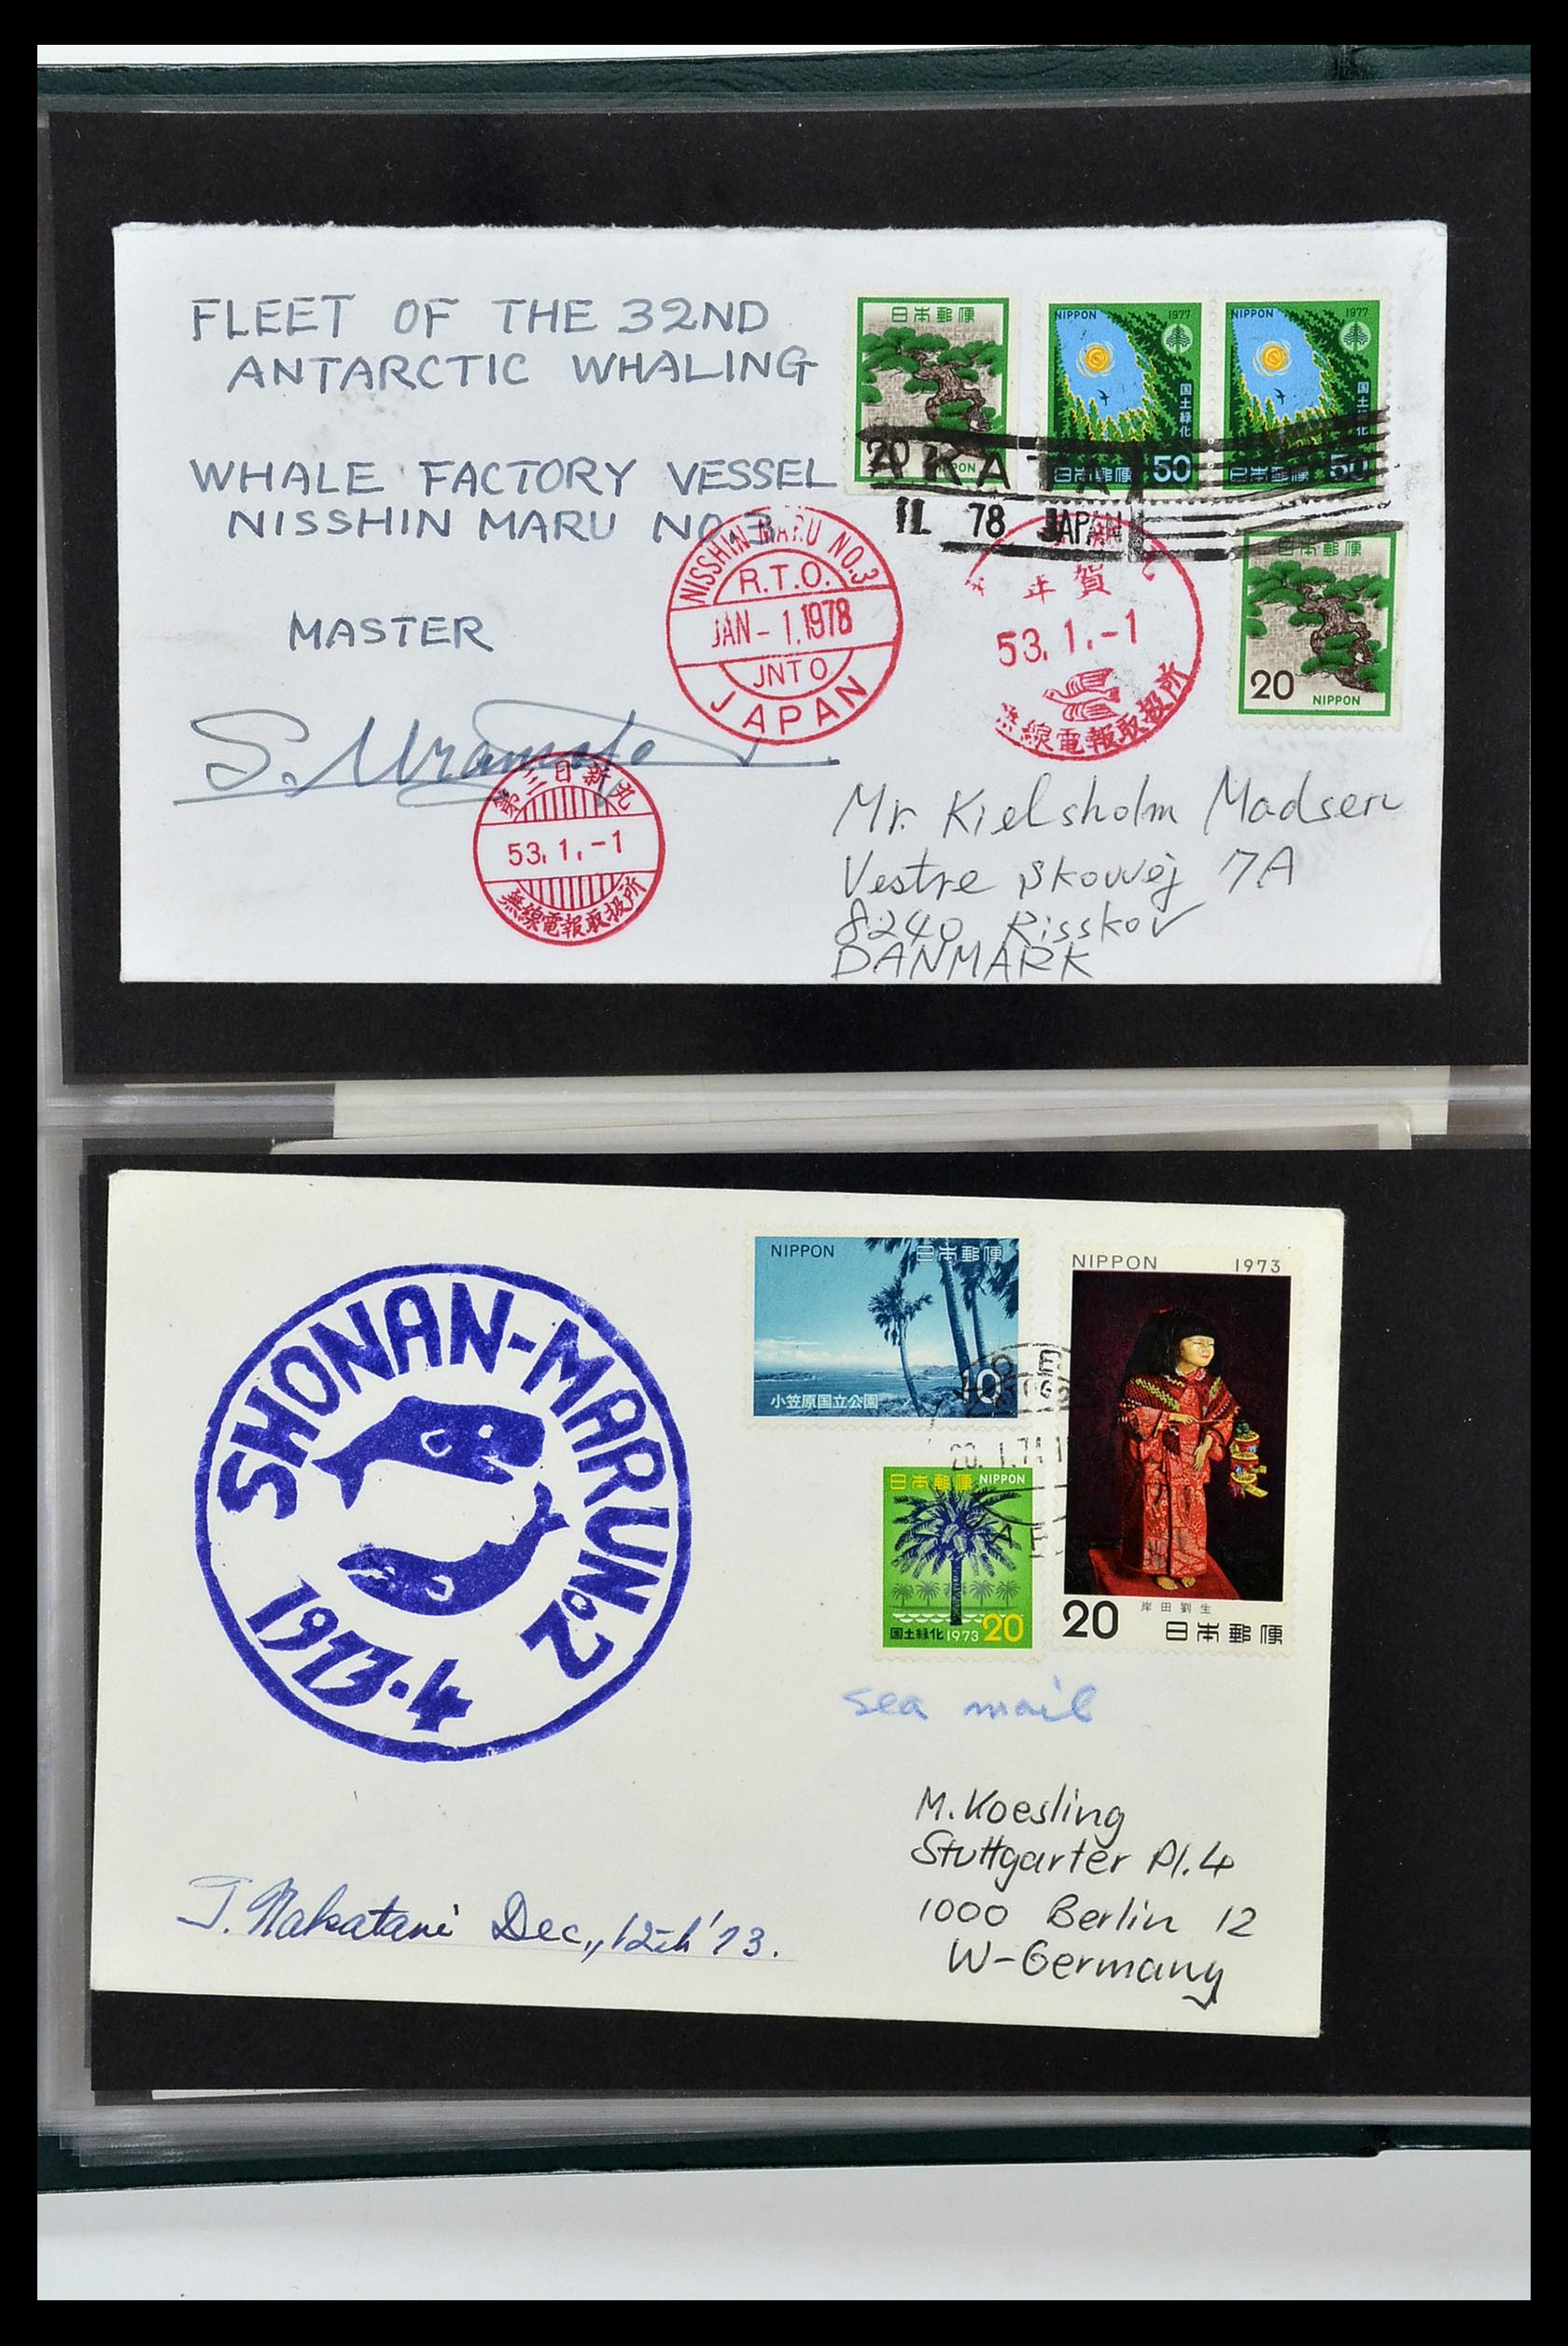 FLEET OF THE 32ND
ANTARCTIC WHALING
WHALE FACTORY VESSEL
NISSHIN MARU NO.3
MASTER
S. Uramoto
日本郵便
20
NIPPON
NIPPON 1977
国土緑化
日本郵便 50
NIPPON 1977
日本郵便 50
78 JAPAN
日本郵便
20
NIPPON
NISSHIN MARU NO.3
R.T.O.
JAN-1.1978
JNTO
JAPAN
年賀
53.1.-1
無線電報取扱所
第三日新丸
53.1.-1
無線電報取扱所
Mr. Kielsholm Madsen
Vestre Skovvej 7A
8240 Risskov
DANMARK
SHONAN-MARU No2
1973.4
NIPPON 日本郵便
小笠原国立公園 10
NIPPON 1973
20 岸田劉生
日本郵便
日本郵便 NIPPON
国土緑化 1973 20
sea mail
M. Koesling
Stuttgarter Pl. 4
1000 Berlin 12
W-Germany
T. Nakatani Dec,, 12th '73.